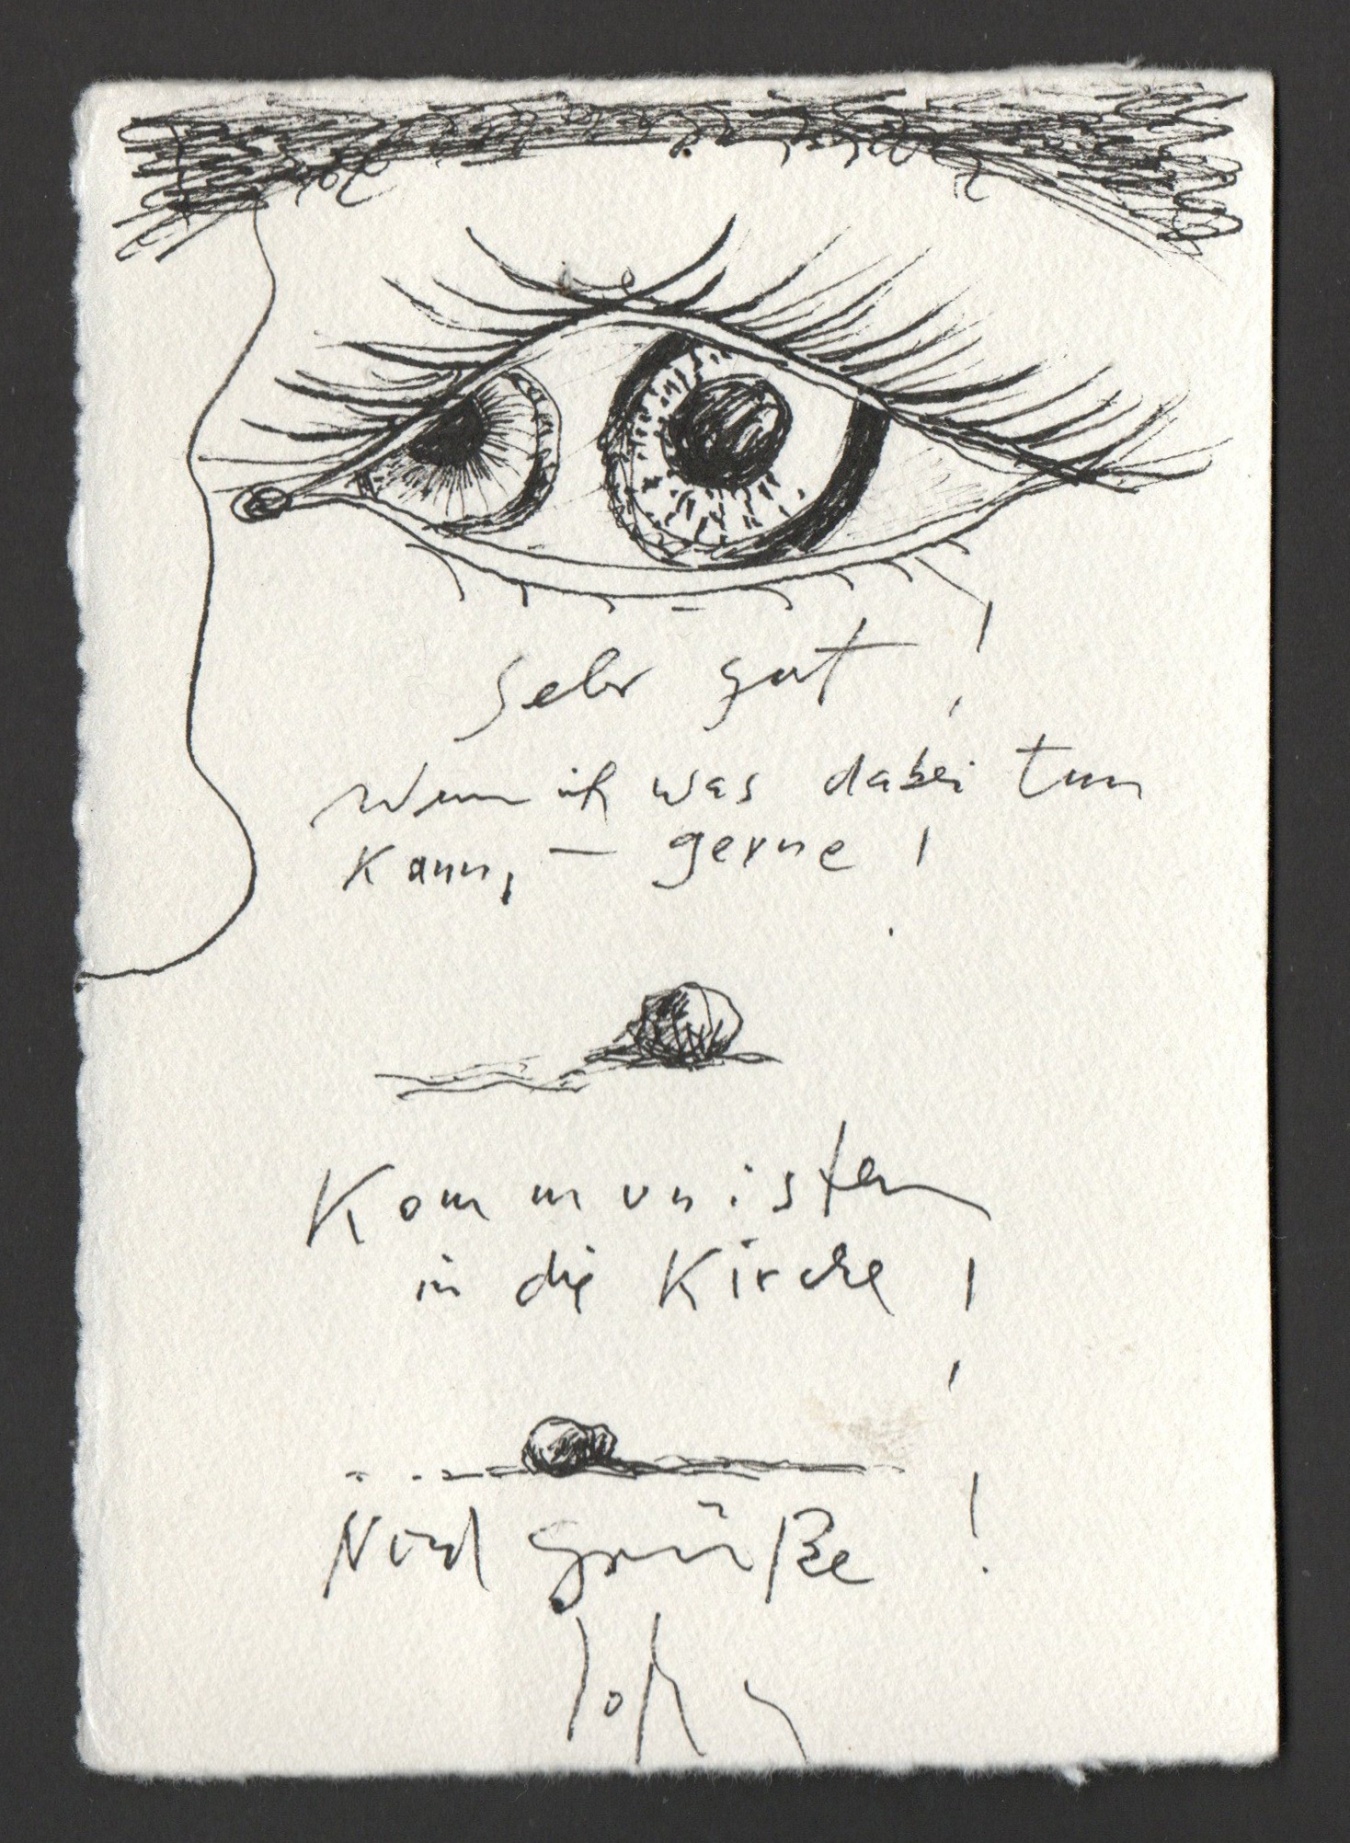 Sehr gut!
Wenn ich was dabei tun
kann, – gerne!
Kommunisten
in die Kirche!
Nord Grüße!